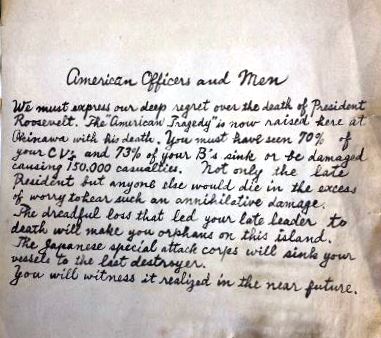 American Officers and Men
We must express our deep regret over the death of President
Roosevelt. The "American Tragedy" is now raised here at
Okinawa with his death. You must have seen 70% of
your CV's and 73% of your B's sink or be damaged
causing 150.000 casualties. Not only the late
President but anyone else would die in the excess
of worry to hear such an annihilative damage.
The dreadful loss that led your late leader to
death will make you orphans on this island.
The Japanese special attack corps will sink your
vessels to the last destroyer.
You will witness it realized in the near future.